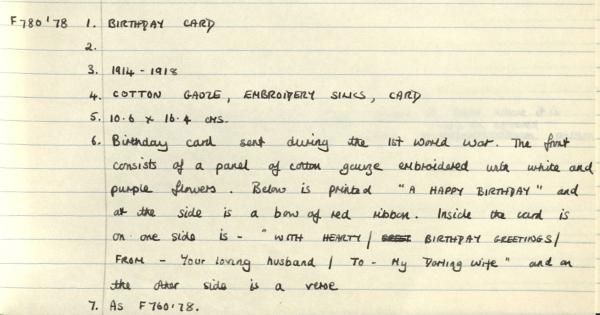 F780'78 1. BIRTHDAY CARD
2.
3. 1914 - 1918
4. COTTON GAUZE, EMBROIDERY SILKS, CARD
5. 10.6 x 16.4 cms.
6. Birthday card sent during the 1st World War. The front
consists of a panel of cotton gauze embroidered with white and
purple flowers. Below is printed "A HAPPY BIRTHDAY" and
at the side is a bow of red ribbon. Inside the card is
on one side is - "WITH HEARTY / BIRTHDAY GREETINGS /
FROM - Your loving husband / To - My Darling Wife" and on
the other side is a verse
7. As F760'78.